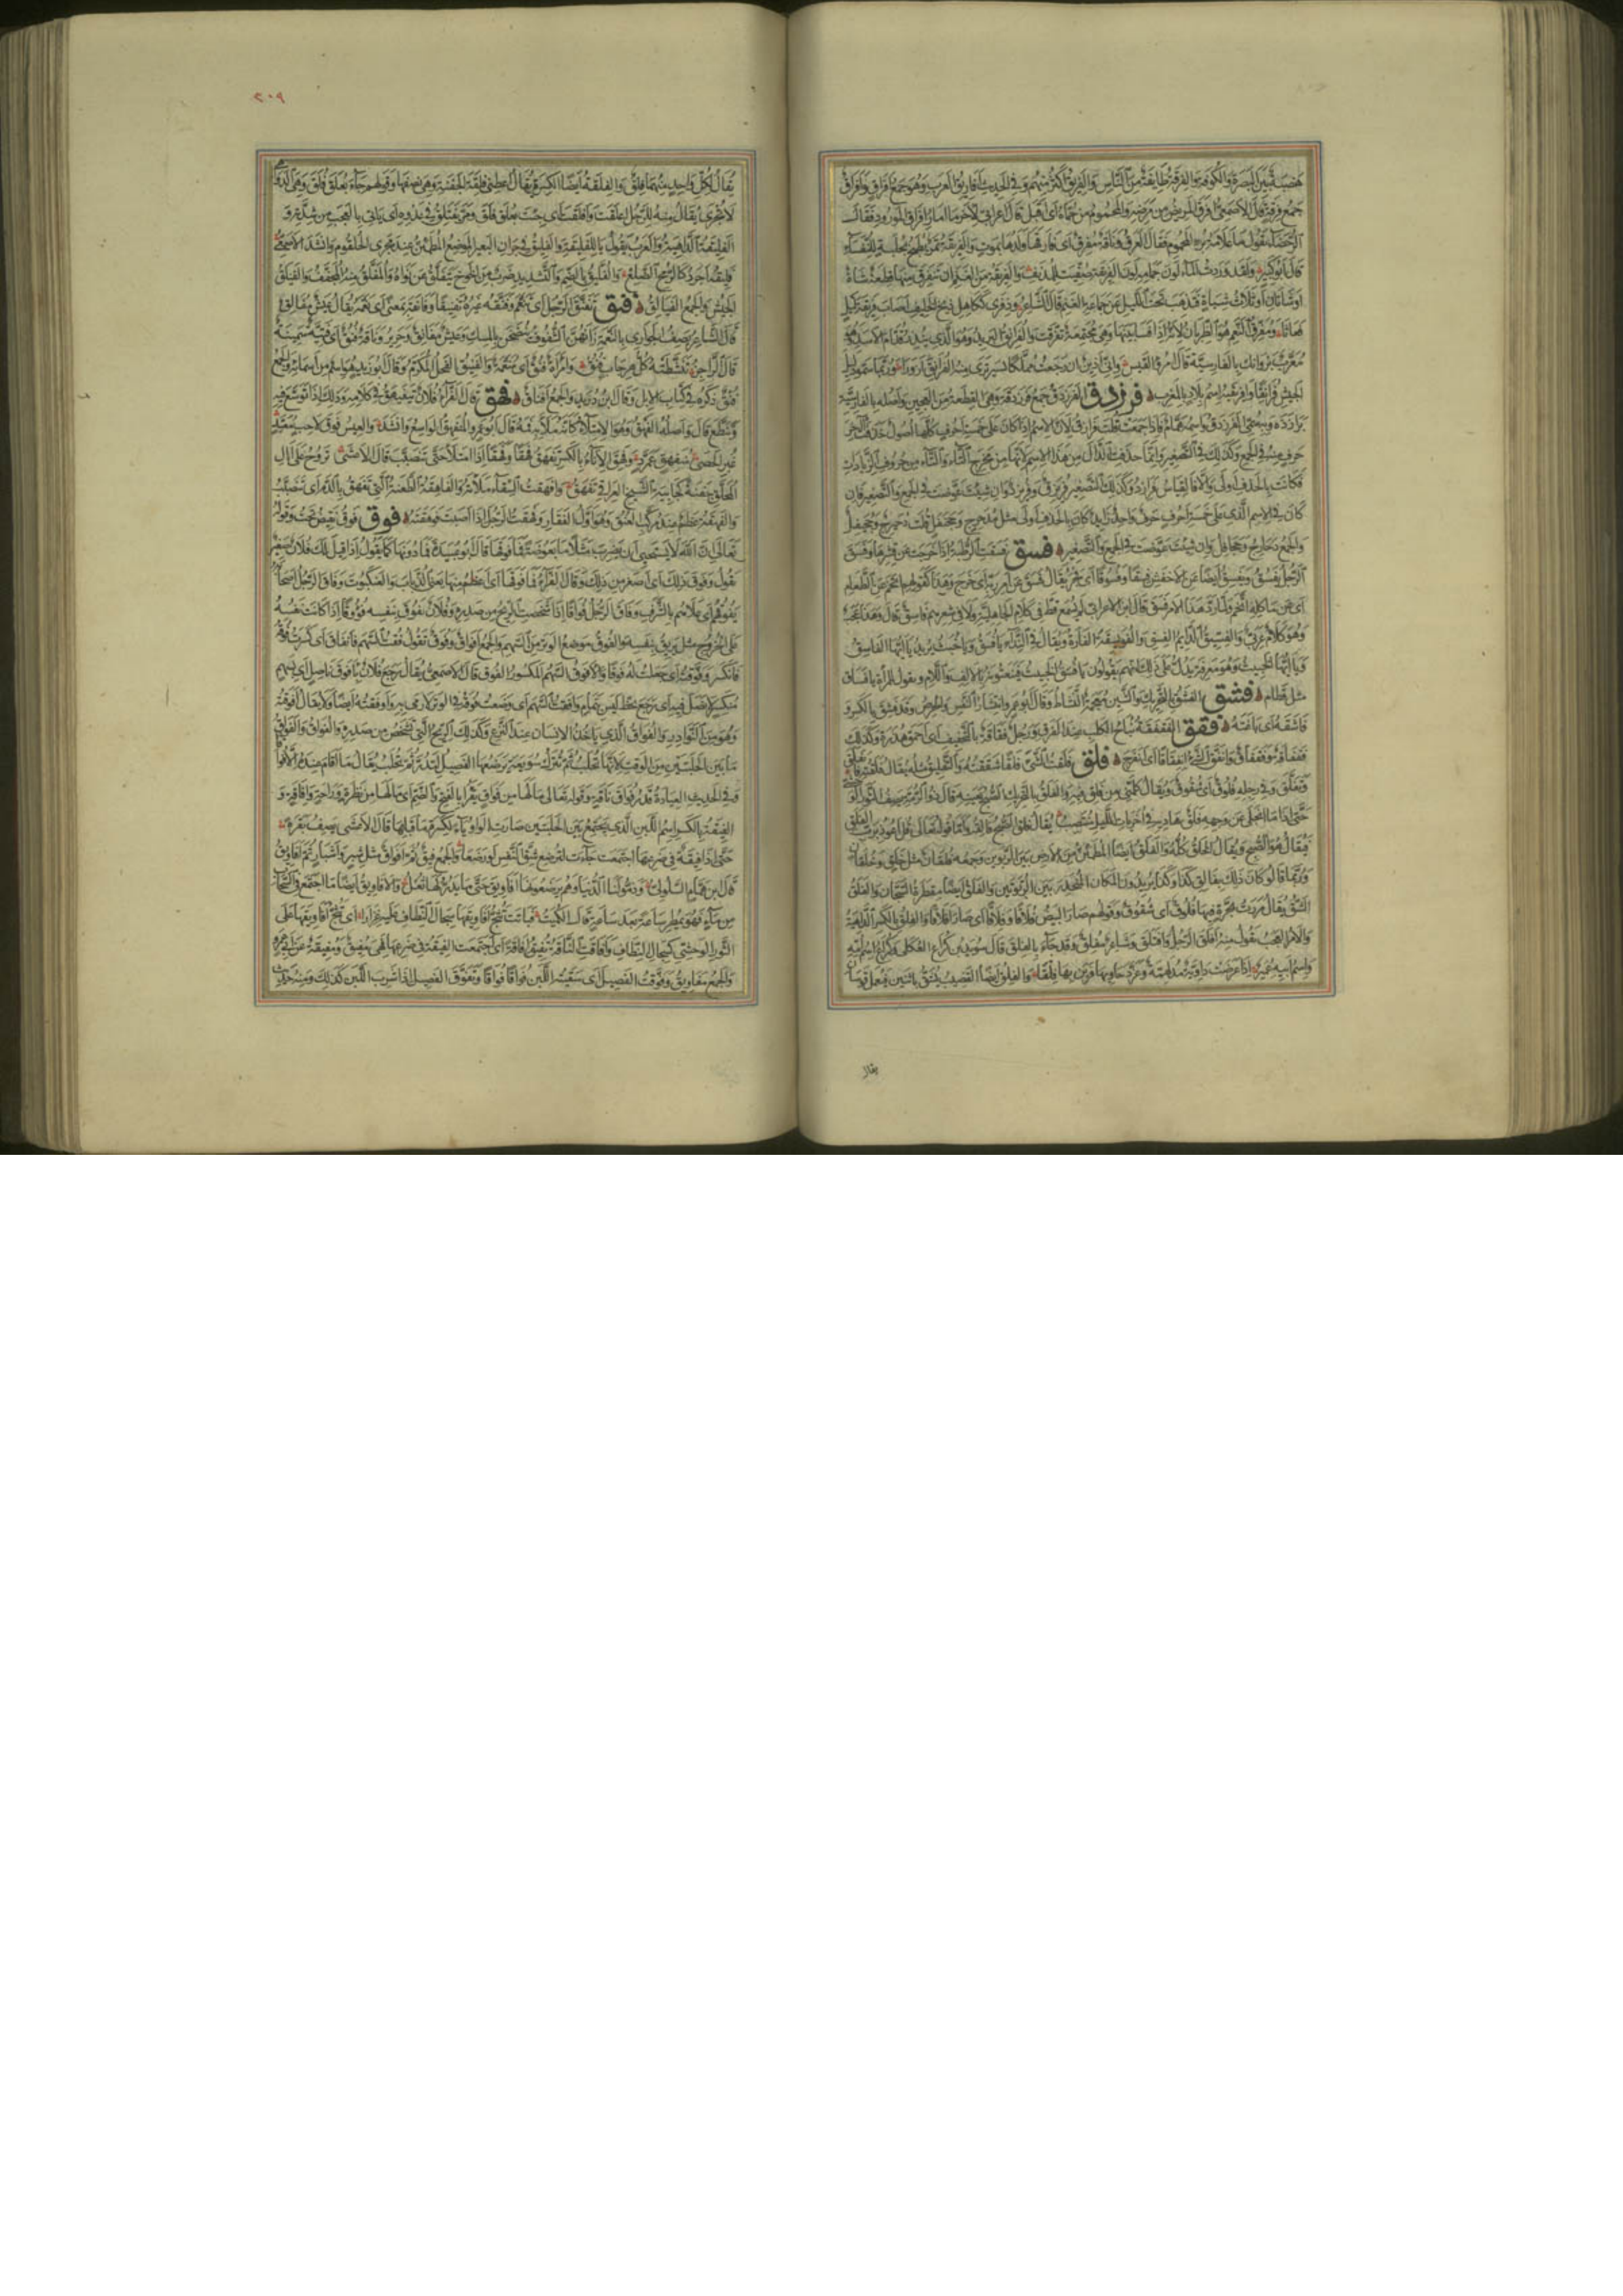 هضبة بين البصرة والكوفة والفرقة طائفة من الناس والفريق اكثر منهم وفي الحديث افاريق العرب وهو جمع افراق وافراق
جمع فرقة قال الاصمعي افرق المريض من مرضه والمحموم من حماه اى اقبل قال اعرابي لآخر ما امار افراق المورود فقال
الرحضاء يقول ما علامة برء المحموم فقال العرق وناقة مفرق اى فارقها ولدها بموت والفريقة تمر يطبخ بحلبة للنفساء
قال ابو كبير ولقد وردت الماء لون جمامه لون الفريقة صفيت للمدنف والفريقة من الغنم ان تتفرق منها قطعة شاة
او شاتان او ثلاث شياه فتذهب تحت الليل عن جماعة الغنم قال الشاعر وذفرى ككاهل ذيخ الخليف اصاب فريقة ليل
فعاثا ومفرق النعم هو الظربان لانه اذا فسا بينها وهي مجتمعة تفرقت والفرانق البريد وهو الذي ينذر قدام الاسد وهو
معرب بروانك بالفارسية قال امرؤ القيس وانى اذين ان رجعت مملكا بسير ترى منه الفرانق ازورا وربما سموا دليل
الجيش فرانقا وافريقية اسم بلاد بالمغرب فرزدق الفرزدق جمع فرزدقة وهي القطعة من العجين واصله بالفارسية
برازده وبه سمي الفرزدق واسمه همام فاذا جمعت قلت فرازق لان الاسم اذا كان على خمسة احرف كلها اصول حذفت آخر
حرف منه في الجمع وكذلك في التصغير وانما حذفت الدال من هذا الاسم لانها من مخرج التاء والتاء من حروف الزيادات
فكانت بالحذف اولى والا فالقياس فرازد وكذلك التصغير فريزق وفريزد وان شئت عوضت في الجمع والتصغير فان
كان في الاسم الذي على خمسة احرف حرف واحد زايد كان بالحذف اولى مثل مدحرج وجحنفل قلت دحيرج وجحيفل
والجمع دحارج وجحافل وان شئت عوضت في الجمع والتصغير فسق فسقت الرطبة اذا خرجت عن قشرها وفسق
الرجل يفسق ويفسق ايضا عن الاخفش فسقا وفسوقا اى فجر يقال فسق عن امر ربه اى خرج وهذا كقولهم اتخم عن الطعام
اى عن ماكله اتخم ولما رد هذا الامر فسق قال ابن الاعرابي لم يسمع قط في كلام الجاهلية ولا في شعرهم فاسق قال وهذا عجب
وهو كلام عربي والفسيق الدايم الفسق والفويسقة الفارة ويقال في النداء يا فسق ويا خبث يريد يا ايها الفاسق
ويا ايها الخبيث وهو معرفة يدل على ذلك انهم يقولون يا فسق الخبيث فينعتونه بالالف واللام ويقول للمراة يا فساق
مثل قطام فشق الفشق بالتحريك والشين معجمة النشاط وقال ابو عمرو انتشار النفس والحرص وقد فشق بالكسر و
فاشقه اى باغته فقق الفقفقة نباح الكلب عند الفرق ورجل فقاقة بالتخفيف اى احمق هذرة وكذلك
فقفاقة وفقفاق وانفق الشيء انفقاقا اى انفرج فلق فلقت الشيء فلقا شققته والتفليق مثله يقال فلقته فانفلق
وتفلق وفي رجله فلوق اى شقوق ويقال كلمني من فلق فيه والفلق بالتحريك الصبح بعينه قال ذو الرمة يصف الثور
حتى اذا ما انجلى عن وجهه فلق هاديه في اخريات الليل منتصب يقال فلق الصبح فالقه واما قوله تعالى قل اعوذ برب الفلق
فيقال هو الصبح ويقال الخلق كله والفلق ايضا المطمئن من الارض بين الربوتين وجمعه فلقان مثل خلق وخلقان
وربما قالوا كان ذلك بفالق كذا وكذا يريدون المكان المنحدر بين الربوتين والفلق ايضا مقطرة السجان والفلق
الشق يقال مررت بحرة فيها فلوق اى شقوق وقولهم صار البيض فلاقا وفلاقا اى صار افلاقا والفلق بالكسر الداهية
والامر العجب تقول منه افلق الرجل وافتلق وشاعر مفلق وقد جاء بالفلق قال سويد بن كراع العكلى وكراع اسم امه
واسم ابيه عمير اذا عرضت داوية مدلهمة وغرد حاديها فرين بها فلقا والفلق ايضا القضيب يشق باثنين فيعمل قوسا
يقال
٢٠٩
يقال لكل واحد منهما فلق والفلقة ايضا الكسرة يقال اعطني فلقة الجفنة وهي نصفها وقولهم جاء بعلق فلق وهي الداهية
لا تجرى يقال منه للرجل اعلقت وافلقت اى جئت بعلق فلق ومر يفتلق في عدوه اى ياتي بالعجب من شدته و
الفليقة الداهية والعرب تقول يا للفليقة والفليق في جران البعير الموضع المطمئن عند مجرى الحلقوم وانشد الاصمعي
فليقه اجرد كالرمح الضلع والفليق بالضم والتشديد ضرب من الخوخ يتفلق عن نواه والمفلق منه المجفف والفيلق
الجيش والجمع الفيالق فنق تفنق الرجل اى تنعم وفنقه غيره تفنيقا وفانقه بمعنى اى نعمه يقال عيش مفانق
قال الشاعر يصف الجواري بالنعمة زانهن الشفوف ينضحن بالمسك وعيش مفانق وحرير وناقة فنق اى فتية سمينة
قال الراجز تنشطته كل هرجاب فنق وامراة فنق اى منعمة والفنيق الفحل المكرم وقال ابو زيد هو اسم من اسمائه والجمع
فنق ذكره في كتاب الابل وقال ابن دريد والجمع افناق فهق قال الفراء فلان يتفيهق في كلامه وذلك اذا توسع فيه
وتنطع قال واصله الفهق وهو الامتلاء كانه ملأ به فمه قال ابو عمرو المنفهق الواسع وانشد والعيس فوق لاحب معبد
غبر الحصى منفهق عمرد وفهق الاناء بالكسر يفهق فهقا وفهقا اذا امتلا حتى تتصبب قال الاعشى تروح على آل
المحلق جفنة كجابية الشيخ العراقي تفهق وافهقت السقاء ملأته والفاهقة الطعنة التي تفهق بالدم اى تتصبب
والفهقة عظم عند مركب العنق وهو اول الفقار وفهقت الرجل اذا اصبت فهقته فوق فوق نقيض تحت وقوله
تعالى ان الله لا يستحيى ان يضرب مثلا ما بعوضة فما فوقها قال ابو عبيدة فما دونها كما يقول اذا قيل لك فلان صغير
تقول وفوق ذلك اى اصغر من ذلك وقال الفراء فما فوقها اى اعظم منها يعني الذباب والعنكبوت وفاق الرجل اصحابه
يفوقهم اى علاهم بالشرف وفاق الرجل فواقا اذا شخصت الريح من صدره وفلان يفوق بنفسه فؤوقا اذا كانت نفسه
على الخروج مثل يريق بنفسه والفوق موضع الوتر من السهم والجمع افواق وفوق تقول فقت السهم فانفاق اى كسرت فوقه
فانكسر وفوقته اى جعلت له فوقا والافوق السهم المكسور الفوق قال الاصمعي يقال رجع فلان بافوق ناصل اى بسهم
منكسر لا نصل فيه اى رجع بحظ ليس بتمام وافقت السهم اى وضعت فوقه في الوتر لارمى به واوفقته ايضا ولا يقال افوقته
وهو من النوادر والفواق الذي ياخذ الانسان عند النزع وكذلك الريح التي تشخص من صدره والفواق والفواق
ما بين الحلبتين من الوقت لانها تحلب ثم تترك سويعة يرضعها الفصيل لتدر ثم تحلب يقال ما اقام عنده الا فواقا
وفي الحديث العيادة قدر فواق ناقة وقوله تعالى ما لها من فواق يقرا بالفتح والضم اى ما لها من نظرة وراحة وافاقة و
الفيقة بالكسر اسم اللبن الذي يجتمع بين الحلبتين صارت الواو ياء لكسرة ما قبلها قال الاعشى يصف بقرة
حتى اذا فيقة في ضرعها اجتمعت جاءت لترضع شق النفس لو رضعا والجمع فيق ثم افواق مثل شبر واشبار ثم افاويق
قال ابن همام السلولى وذموا لنا الدنيا وهم يرضعونها افاويق حتى ما يدر لها ثعل والافاويق ايضا ما اجتمع في السحاب
من ماء فهو يمطر ساعة بعد ساعة قال الكميت فباتت تثج افاويقها سجال النطاف عليه غزارا اى تثج افاويقها على
الثور الوحشى كسجال النطاف وافاقت الناقة تفيق افاقة اى اجتمعت الفيقة في ضرعها فهي مفيق ومفيقة عن ابي عمرو
والجمع مفاويق وفوقت الفصيل اى سقيته اللبن فواقا فواقا وتفوق الفصيل اذا شرب اللبن كذلك ومنه حديث